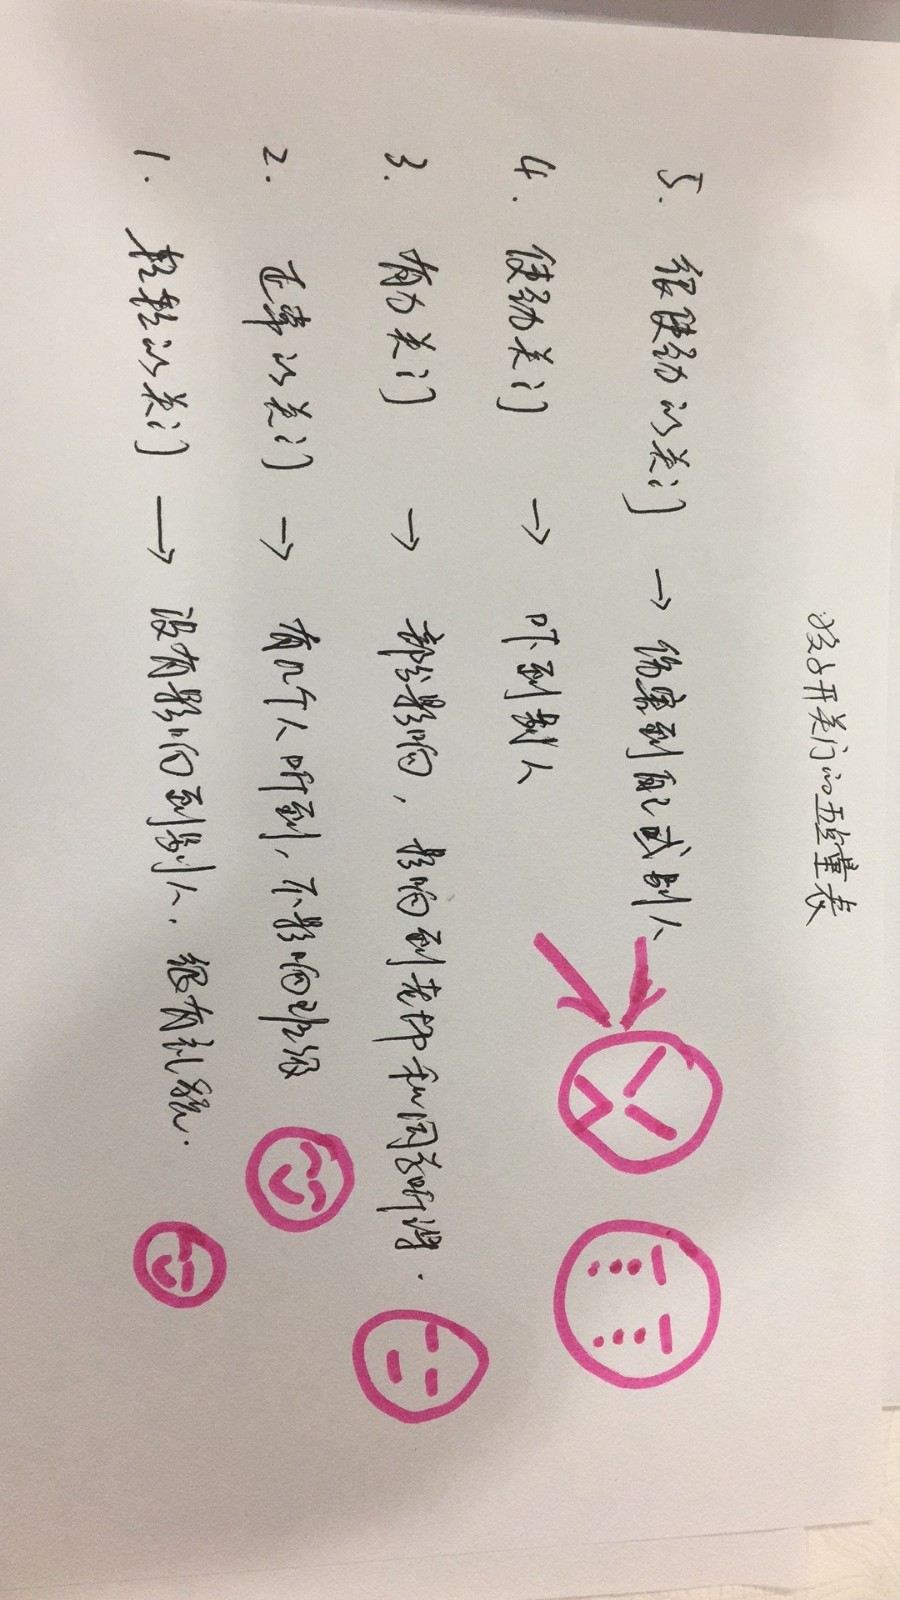 孩子开关门的五点量表
5. 很使劲的关门 → 伤害到自己或别人
4. 使劲关门 → 吓到别人
3. 有力关门 → 部分影响，影响到老师和同学听课.
2. 正常的关门 → 有几个人听到，不影响班级
1. 轻轻的关门 → 没有影响到别人，很有礼貌.